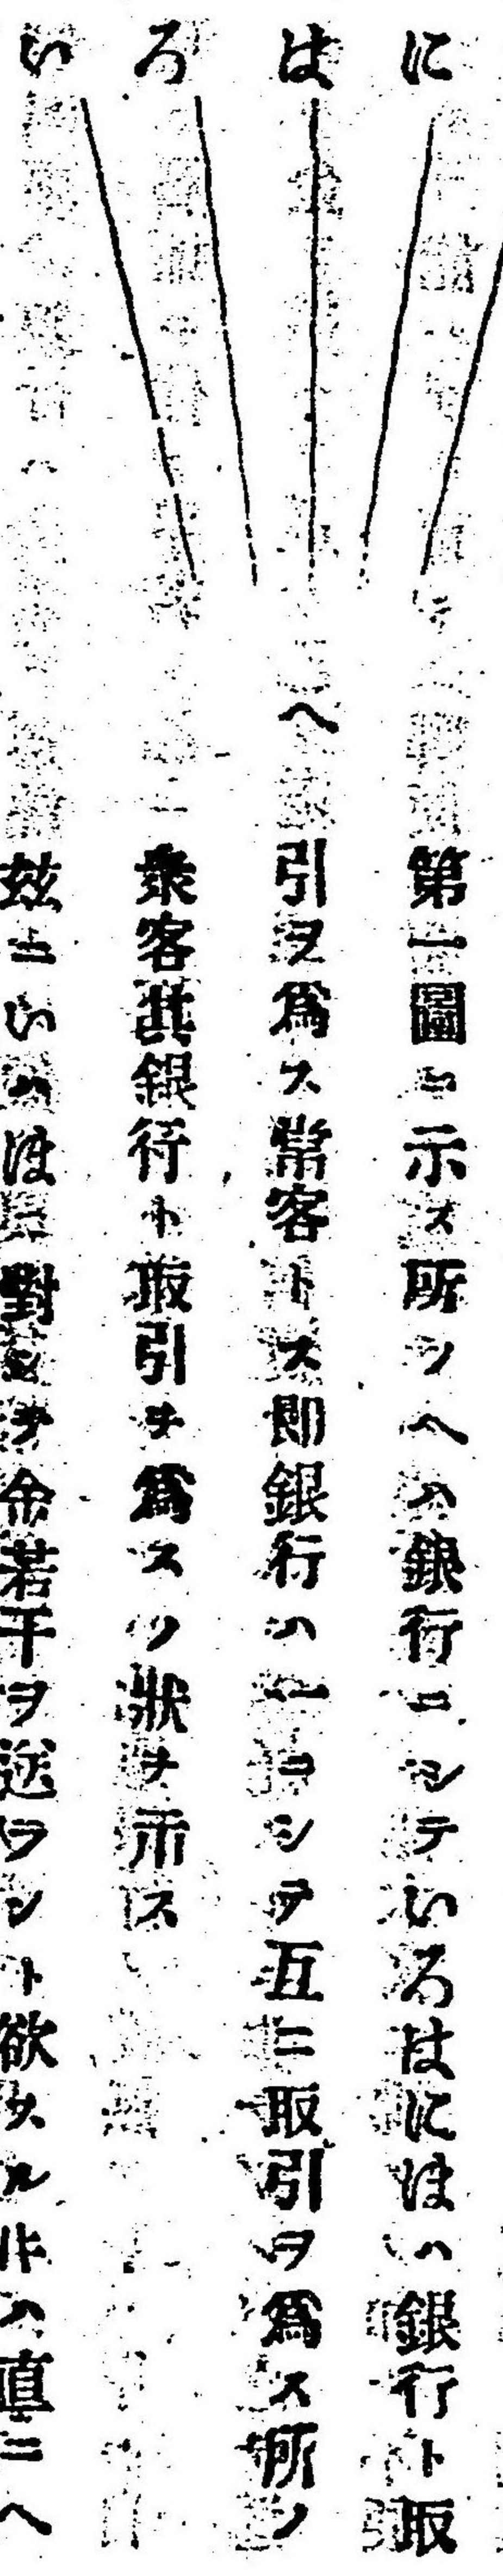 に
は
ろ
い
へ
第一圖ニ示ス所ノへハ銀行ニシテいろはにほハ銀行ト取
引ヲ爲ス常客トス即銀行ハ一ニシテ互ニ取引ヲ爲ス所ノ
衆客其銀行ト取引ヲ爲スノ狀ヲ示ス
茲ニいハほニ對シテ金若干ヲ送ラント欲スル件ハ直ニへ